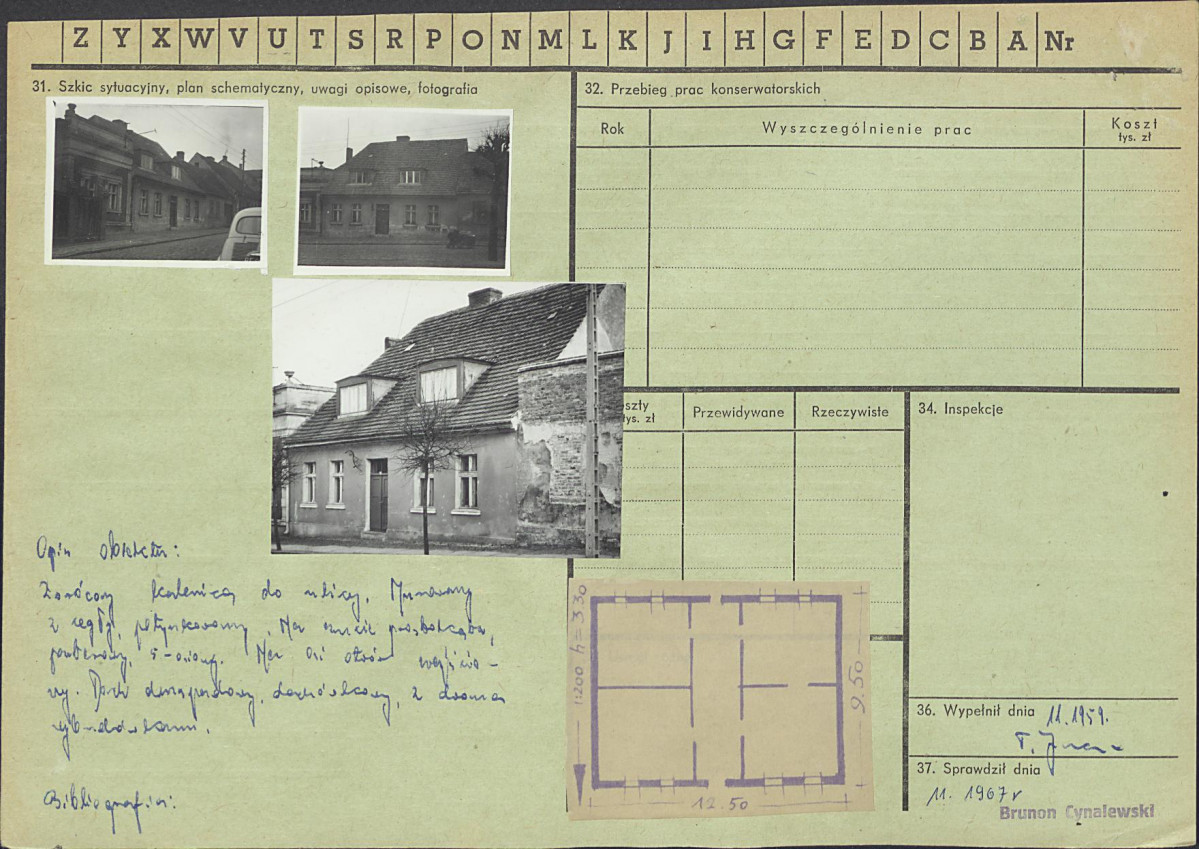 Z Y X W V U T S R P O N M L K J I H G F E D C B A Nr
31. Szkic sytuacyjny, plan schematyczny, uwagi opisowe, fotografia
32. Przebieg prac konserwatorskich
Rok
Wyszczególnienie prac
Koszt
tys. zł
szty
tys. zł
Przewidywane
Rzeczywiste
34. Inspekcje
Opis obiektu:
Zwrócony kalenicą do ulicy. Murowany
z cegły, potynkowany. Na rzucie prostokąta,
parterowy, 5-osiowy. Na osi otwór wejścio-
wy. Dach dwuspadowy, dachówkowy, z dwoma
wybudówkami.
Bibliografia:
1:200 h=3.30
9.50
12.50
36. Wypełnił dnia 11.1959.
T.
37. Sprawdził dnia
11. 1967 r
Brunon Cynalewski